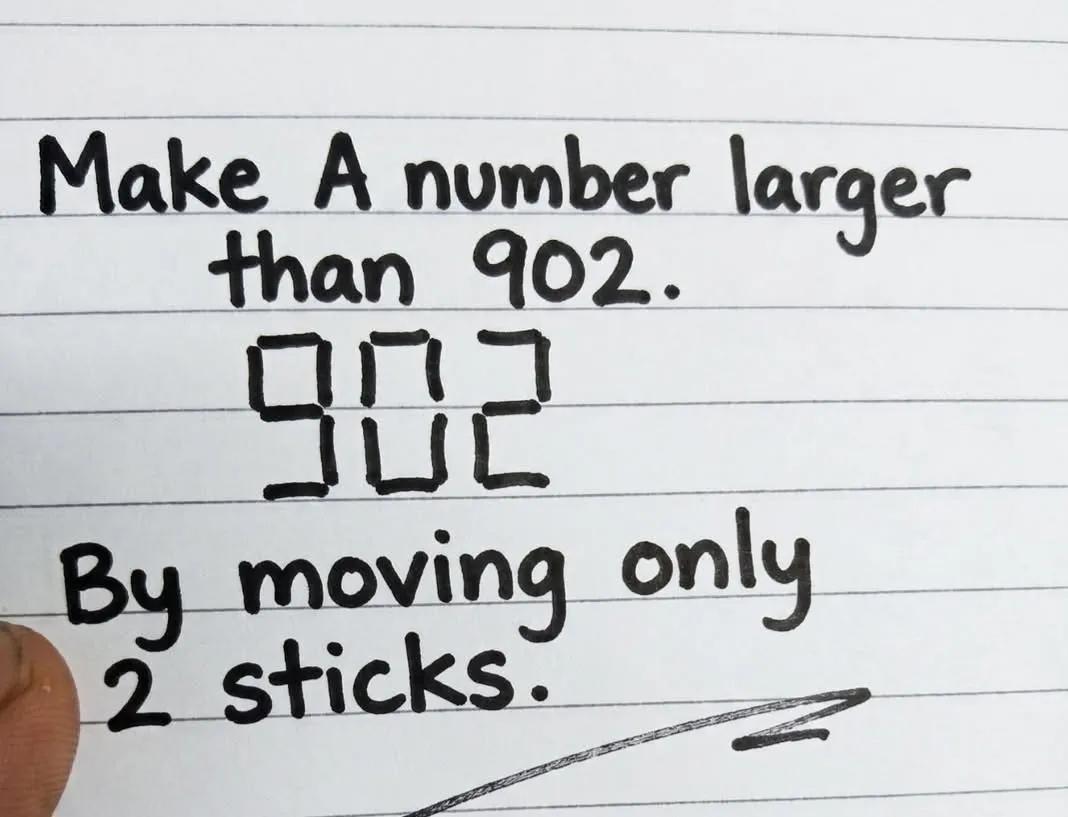 Make A number larger
than 902.
902
By moving only
2 sticks.